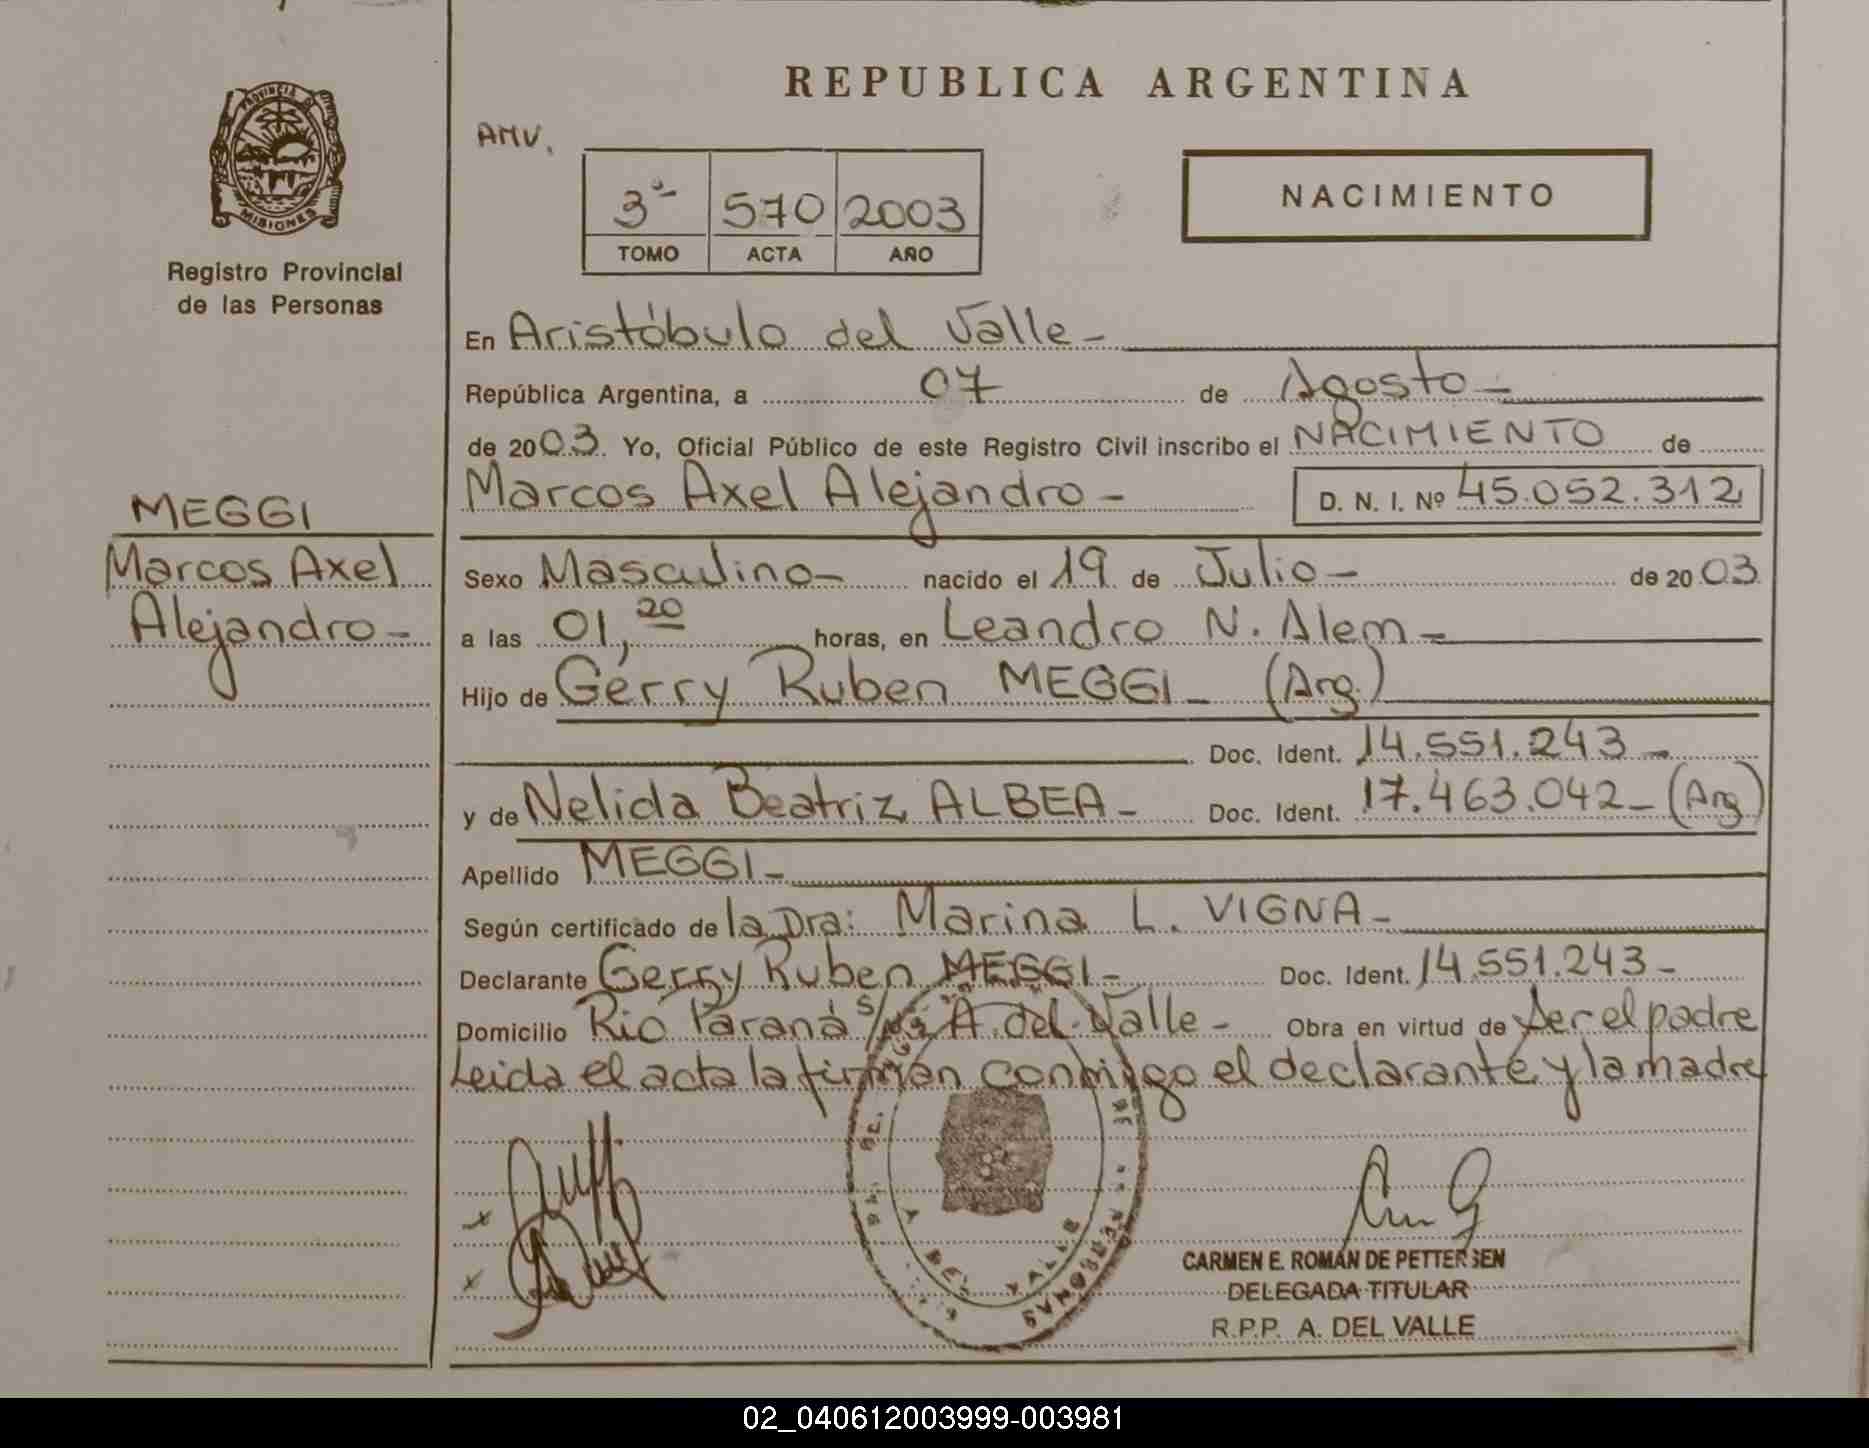 PROVINCIA DE
MISIONES
Registro Provincial
de las Personas
MEGGI
Marcos Axel
Alejandro -
REPUBLICA ARGENTINA
AMV.
3º 570 2003
TOMO ACTA AÑO
NACIMIENTO
En Aristóbulo del Valle -
República Argentina, a 07 de Agosto -
de 2003. Yo, Oficial Público de este Registro Civil inscribo el NACIMIENTO de
Marcos Axel Alejandro - D. N. I. Nº 45.052.312
Sexo Masculino - nacido el 19 de Julio - de 2003
a las 01,20 horas, en Leandro N. Alem -
Hijo de Gerry Ruben MEGGI - (Arg.)
Doc. Ident. 14.551.243 -
y de Nelida Beatriz ALBEA - Doc. Ident. 17.463.042 - (Arg)
Apellido MEGGI -
Según certificado de la Dra: Marina L. VIGNA -
Declarante Gerry Ruben MEGGI - Doc. Ident. 14.551.243 -
Domicilio Rio Paraná A. del Valle - Obra en virtud de Ser el padre
Leida el acta la firman conmigo el declarante y la madre
A. DEL VALLE
CARMEN E. ROMÁN DE PETTERSEN
DELEGADA TITULAR
R.P.P. A. DEL VALLE
02_040612003999-003981